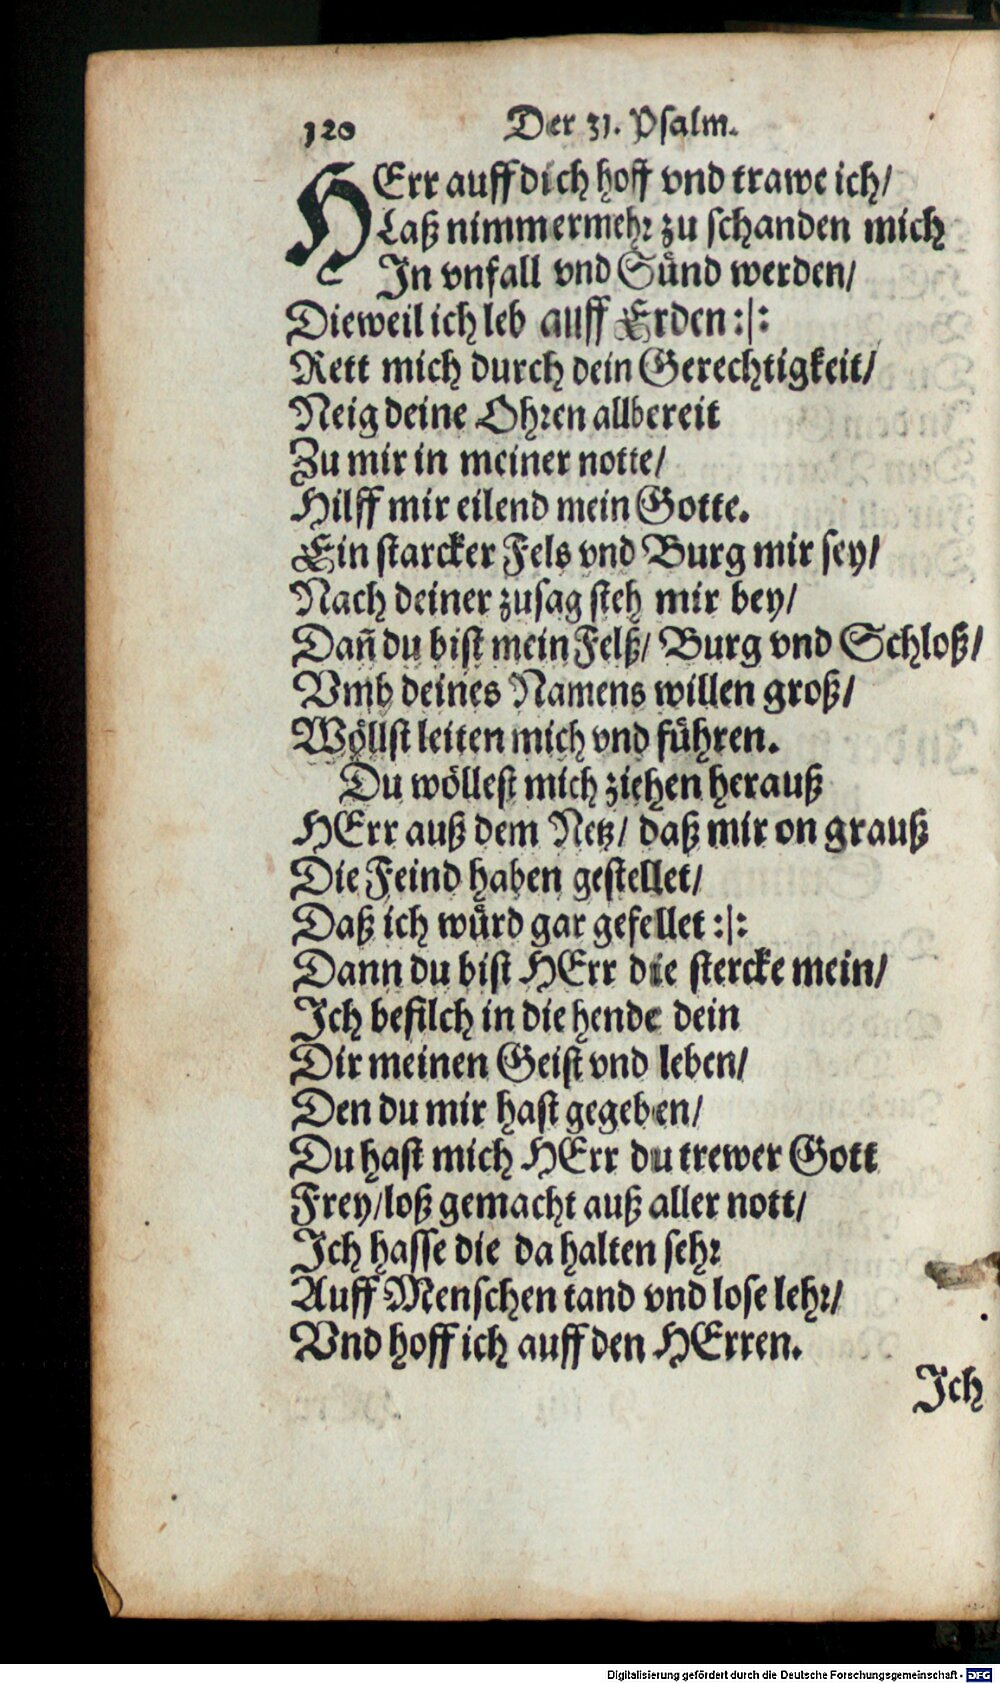 120 Der 31. Psalm.
HErr auff dich hoff vnd trawe ich/
Laß nimmermehr zu schanden mich
In vnfall vnd Sünd werden/
Dieweil ich leb auff Erden :|:
Rett mich durch dein Gerechtigkeit/
Neig deine Ohren allbereit
Zu mir in meiner notte/
Hilff mir eilend mein Gotte.
Ein starcker Fels vnd Burg mir sey/
Nach deiner zusag steh mir bey/
Dañ du bist mein Felß/ Burg vnd Schloß/
Vmb deines Namens willen groß/
Wöllst leiten mich vnd führen.
Du wöllest mich ziehen herauß
HErr auß dem Netz/ daß mir on grauß
Die Feind haben gestellet/
Daß ich würd gar gefellet :|:
Dann du bist HErr die stercke mein/
Ich befilch in die hende dein
Dir meinen Geist vnd leben/
Den du mir hast gegeben/
Du hast mich HErr du trewer Gott
Frey/loß gemacht auß aller nott/
Ich hasse die da halten sehr
Auff Menschen tand vnd lose lehr/
Vnd hoff ich auff den HErren.
Ich
Digitalisierung gefördert durch die Deutsche Forschungsgemeinschaft - DFG